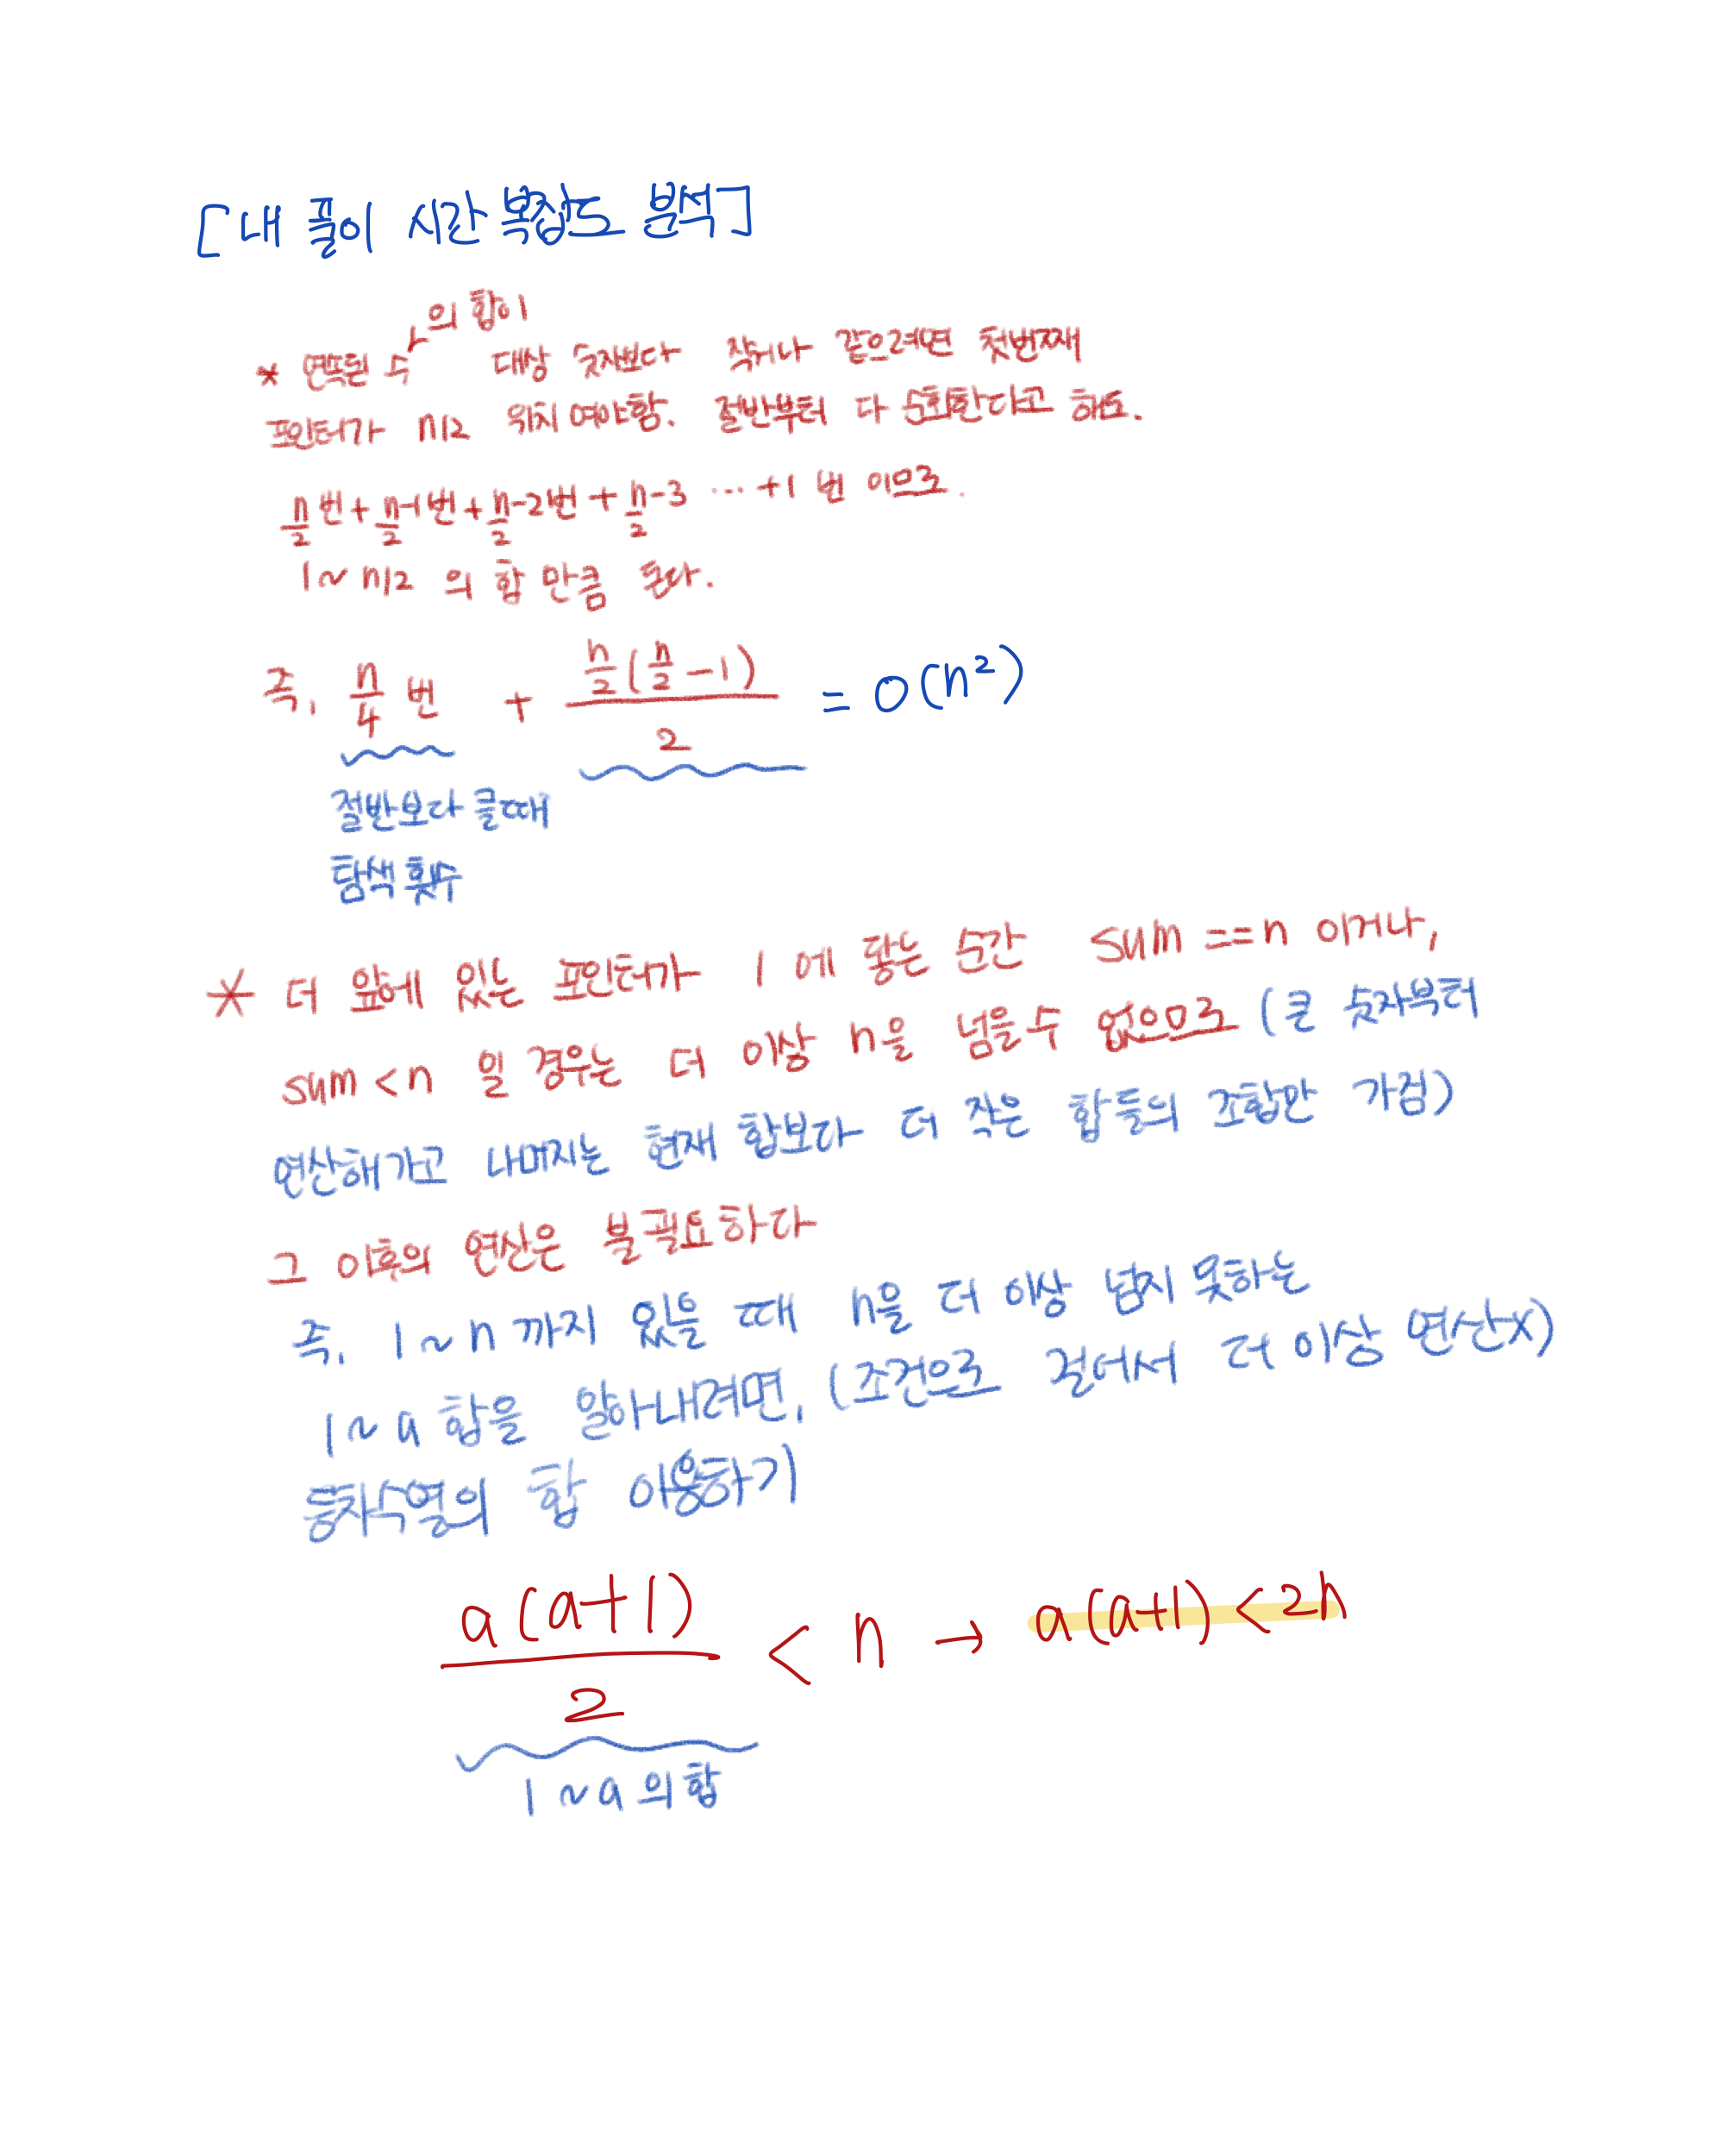 [내 풀이 시간 복잡도 분석]
* 연속된 수의 합이 대상 숫자보다 작거나 같으려면 첫번째
포인터가 n/2 위치여야함. 절반부터 다 순회한다고 해도.
n/2번 + n/2-1번 + n/2-2번 + n/2-3 ... +1 번 이므로.
1~n/2 의 합 만큼 돈다.
즉, n/4 번 + n/2(n/2-1)/2 = O(n²)
절반보다 클때
탐색횟수
* 더 앞에 있는 포인터가 1에 닿는 순간 sum==n 이거나,
sum<n 일 경우는 더 이상 n을 넘을수 없으므로 (큰 숫자부터
연산해가고 나머지는 현재 합보다 더 작은 합들의 조합만 가짐)
그 이후의 연산은 불필요하다
즉, 1~n까지 있을 때 n을 더 이상 넘지 못하는
1~a 합을 알아내려면, (조건으로 걸어서 더 이상 연산x)
등차수열의 합 이용하기
a(a+1)/2 < n → a(a+1)<2n
1~a의 합